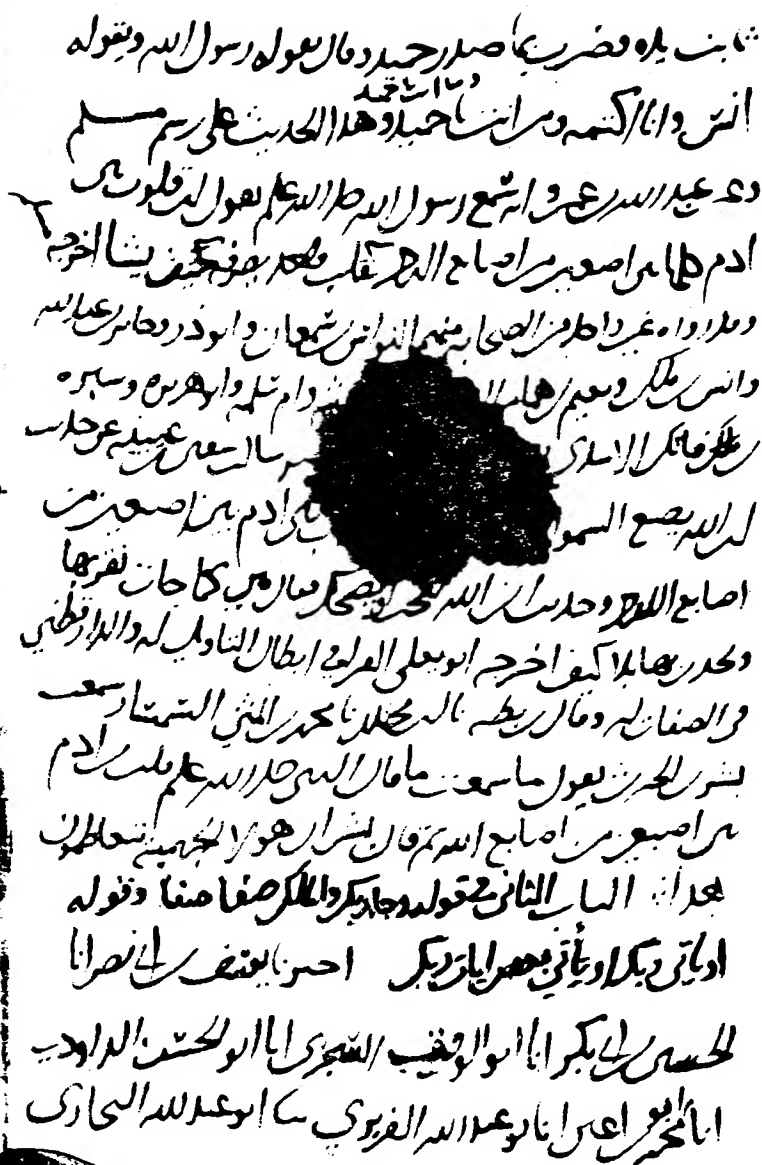 ثابت يده فضرب بها صدر حميد وقال يقوله رسول الله ويقوله
انس وانا اكتمه ومن انت يا حميد وما انت يا حميد وهذا الحديث على رسم مسلم
وعن عبد الله بن عمرو انه سمع رسول الله صلى الله علم يقول ان قلوب بني
ادم كلها بين اصبعين من اصابع الرحمن كقلب واحد يصرفه كيف يشا اخرجه
وقد رواه غير واحد من الصحابة منهم النواس بن سمعان وابو ذر وجابر بن عبد الله
وانس بن ملك ونعيم بن همار وام سلمه وابو هريره وسبره
بن فاتك الاسدي سالت سفين بن عيينه عن حديث
ان الله يضع السمو بني ادم بين اصبعين من
اصابع الرحمن وحديث ان الله يعجب ويضحك فقال هي كما جات نقر بها
ونحدث بها بلا كيف اخرجه ابو يعلى الفرا في ابطال التاويل له والدارقطني
في الصفات له وقال بن بطه نا بن مخلد نا محمد بن المثنى السمسار سمعت
بشر بن الحرث يقول ما سمعت ما قال النبي صلى الله علم قلب بن ادم
بين اصبعين من اصابع الله ثم قال بشر ان هولا الجهمية يتعاظمون
هذا الباب الثاني في قوله وجا ربك والملك صفا صفا وقوله
او ياتي ربك او يأتي بعض ايات ربك اخبرنا يعيش بن ابي نصر انا
الحسين بن ابي بكر انا ابو الوقت السجزي انا ابو الحسن الداودي
انا ابو محمد بن اعين انا ابو عبد الله الفربري نا ابو عبد الله البخاري